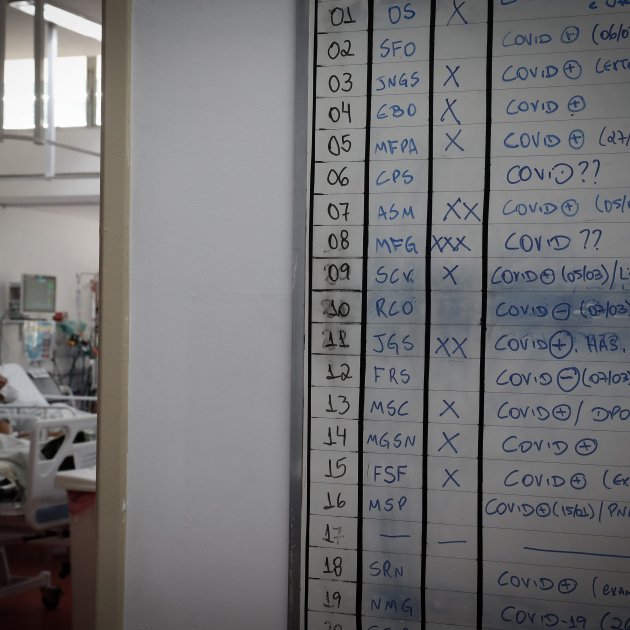 01 OS X
02 SFO COVID ⊕ (06/0
03 JNGS X COVID ⊕
04 EBO X COVID ⊕
05 MFPA X COVID ⊕ (27/
06 CPS COVID ??
07 ASM XX COVID ⊕ (05/0
08 MFG XXX COVID ??
09 SCV X COVID ⊕ (05/03)/
10 RCO COVID ⊖ (07/03)
11 JGS XX COVID ⊕. HAS.
12 FRS COVID ⊖ (07/03)
13 MSC X COVID ⊕ / DPO
14 MGSN X COVID ⊕
15 FSF X COVID ⊕
16 MSP COVID ⊕ (15/01) / PN
17 — — —
18 SRN COVID ⊕ (EXAM
19 NMG COVID-19 (26